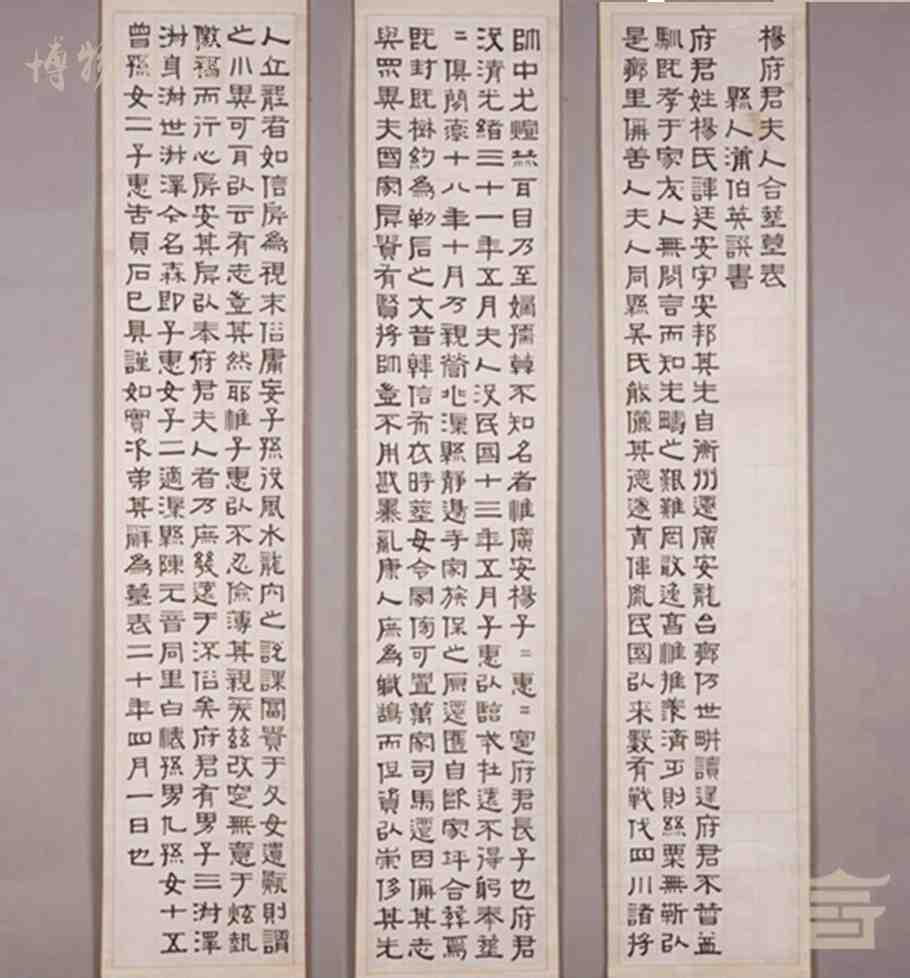 楊府君夫人合葬墓表
縣人蒲伯英譔書
府君姓楊氏諱廷安字安邦其先自衡州遷廣安龍台鄉仍世畊讀逮府君不替益
馴既孝于家友人無閒言而知先疇之艱難罔敢逸惟推濟丏則絲粟無靳以
是鄉里偁善人夫人同縣吳氏能儷其德遂育胤民國以来數有戰伐四川諸將
帥中尤煌耳目乃至婦孺莫不知名者惟廣安楊子〻惠〻寔府君長子也府君
没清光緒三十一年五月夫人没民國十三年五月子惠以臨戎在遠不得躬奉塟
〻俱闕焉十八年十月乃親營兆渠縣靜邊寺家族保之原遷匶自歐家坪合葬焉
既封既樹約為勒石之文昔韓信布衣時塟母令冢傍可置萬家司馬遷因偁其志
與眾異夫國家所貴有賢將帥豈不用戡暴亂康人庶為職鵠而但資以崇侈其先
人丘壟者如信所為視末俗庸妄子孫役風水龍穴之說課冨貴于父母遺骴則謂
之小異可耳以云有志豈其然耶惟子惠以不忍儉薄其親茲改窆無意于炫埶
徼福而行心所安其所以奉府君夫人者乃庶幾遠于深俗矣府君有男子三澍澤
澍身澍世澍澤今名森即子惠女子二適渠縣陳元音同里白孫男九孫女十五
曾孫女二子惠告貞石已具謹如實次弟其辭為墓表二十年四月一日也
博物